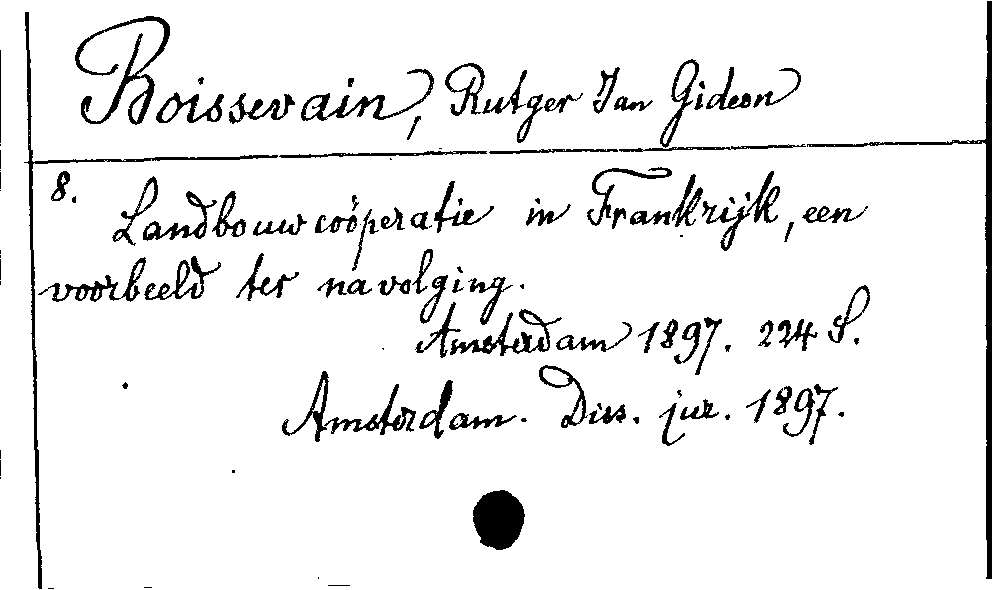 Boissevain, Rutger Jan Gideon
8.
Landbouwcoöperatie in Frankrijk, een
voorbeeld ter navolging.
Amsterdam 1897. 224 S.
Amsterdam. Diss. jur. 1897.